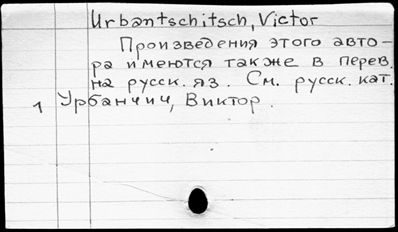 Urbantschitsch, Victor
Произведения этого авто-
ра имеются также в перев.
на русск. яз. См. русск. кат.
1 Урбанчич, Виктор.